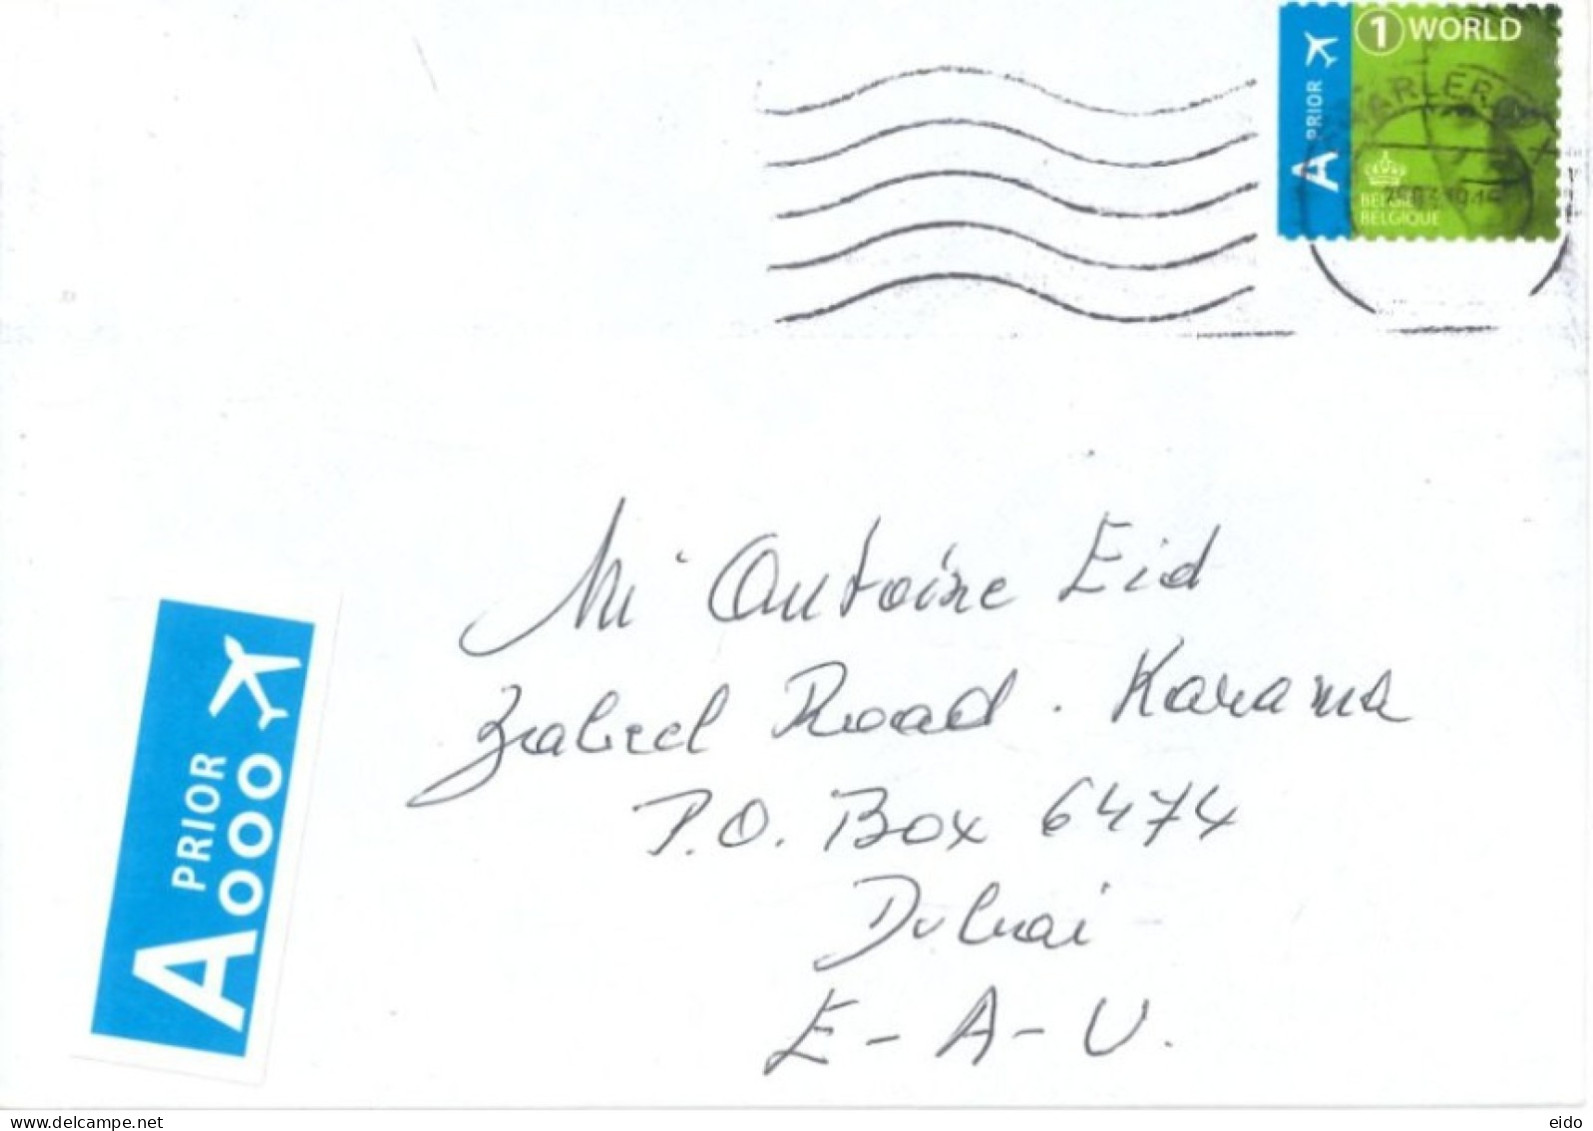 1 WORLD
A PRIOR
BELGIË
BELGIQUE
Mr Antoine Eid
Zabeel Road . Karama
P.O. Box 6474
Dubai
E - A - U.
A PRIOR
www.delcampe.net
eido